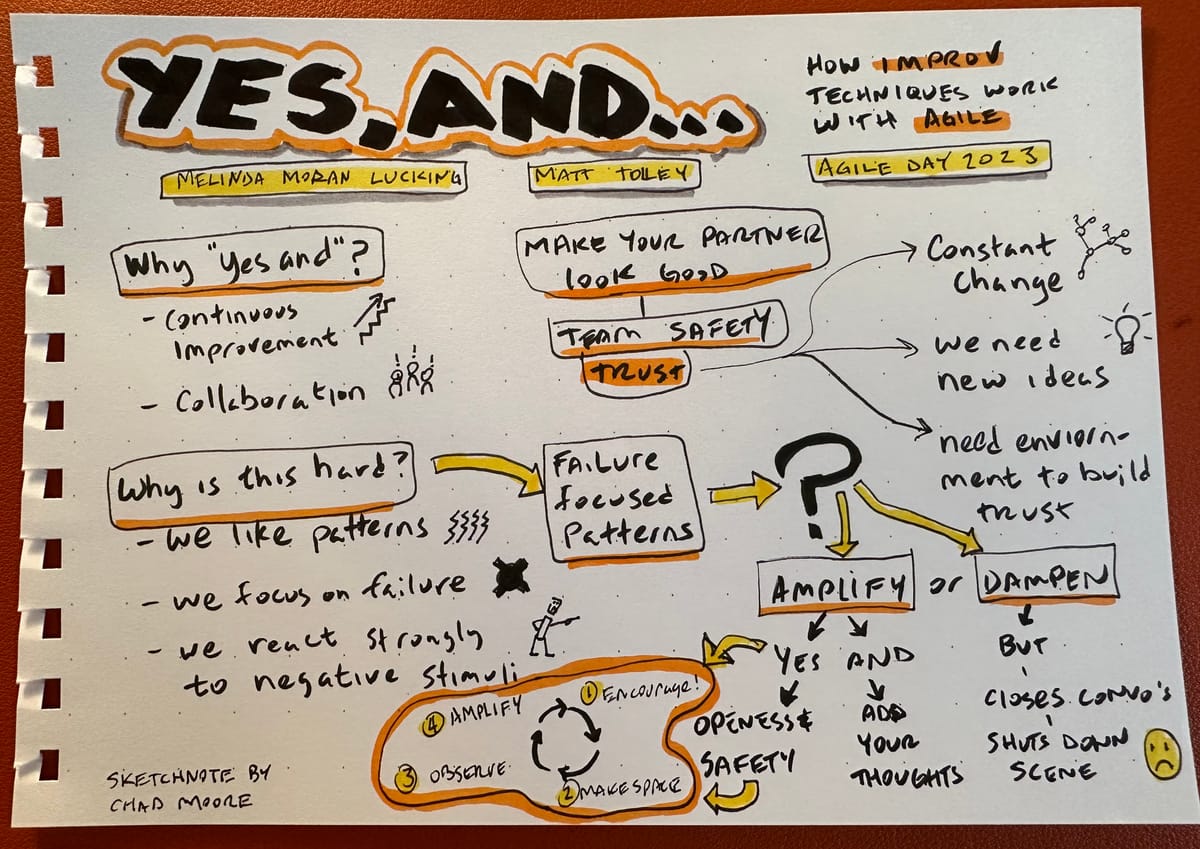 YES, AND...
HOW IMPROV
TECHNIQUES WORK
WITH AGILE
MELINDA MORAN LUCKING
MATT TOLLEY
AGILE DAY 2023
Why "yes and"?
- Continuous
Improvement
- Collaboration
MAKE YOUR PARTNER
look GOOD
TEAM SAFETY
TRUST
Constant
Change
we need
new ideas
need enviorn-
ment to build
trust
Why is this hard?
- we like patterns
- we focus on failure
- we react strongly
to negative stimuli
FAILURE
focused
Patterns
?
AMPLIFY or DAMPEN
YES AND
OPENESS &
SAFETY
ADD
YOUR
THOUGHTS
BUT
CLOSES CONVO'S
SHUTS DOWN
SCENE
① ENCOURAGE!
② MAKE SPACE
③ OBSERVE
④ AMPLIFY
SKETCHNOTE BY
CHAD MOORE